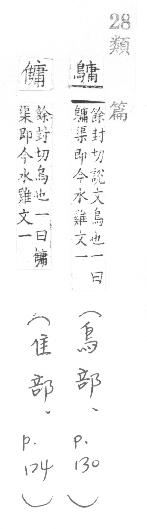 28類篇
鷛 餘封切說文鳥也一曰
鷛渠即今水雞文一
(鳥部、p.130)
𪅟 餘封切鳥也一曰鷛
渠即今水雞文一
(隹部、p.124)